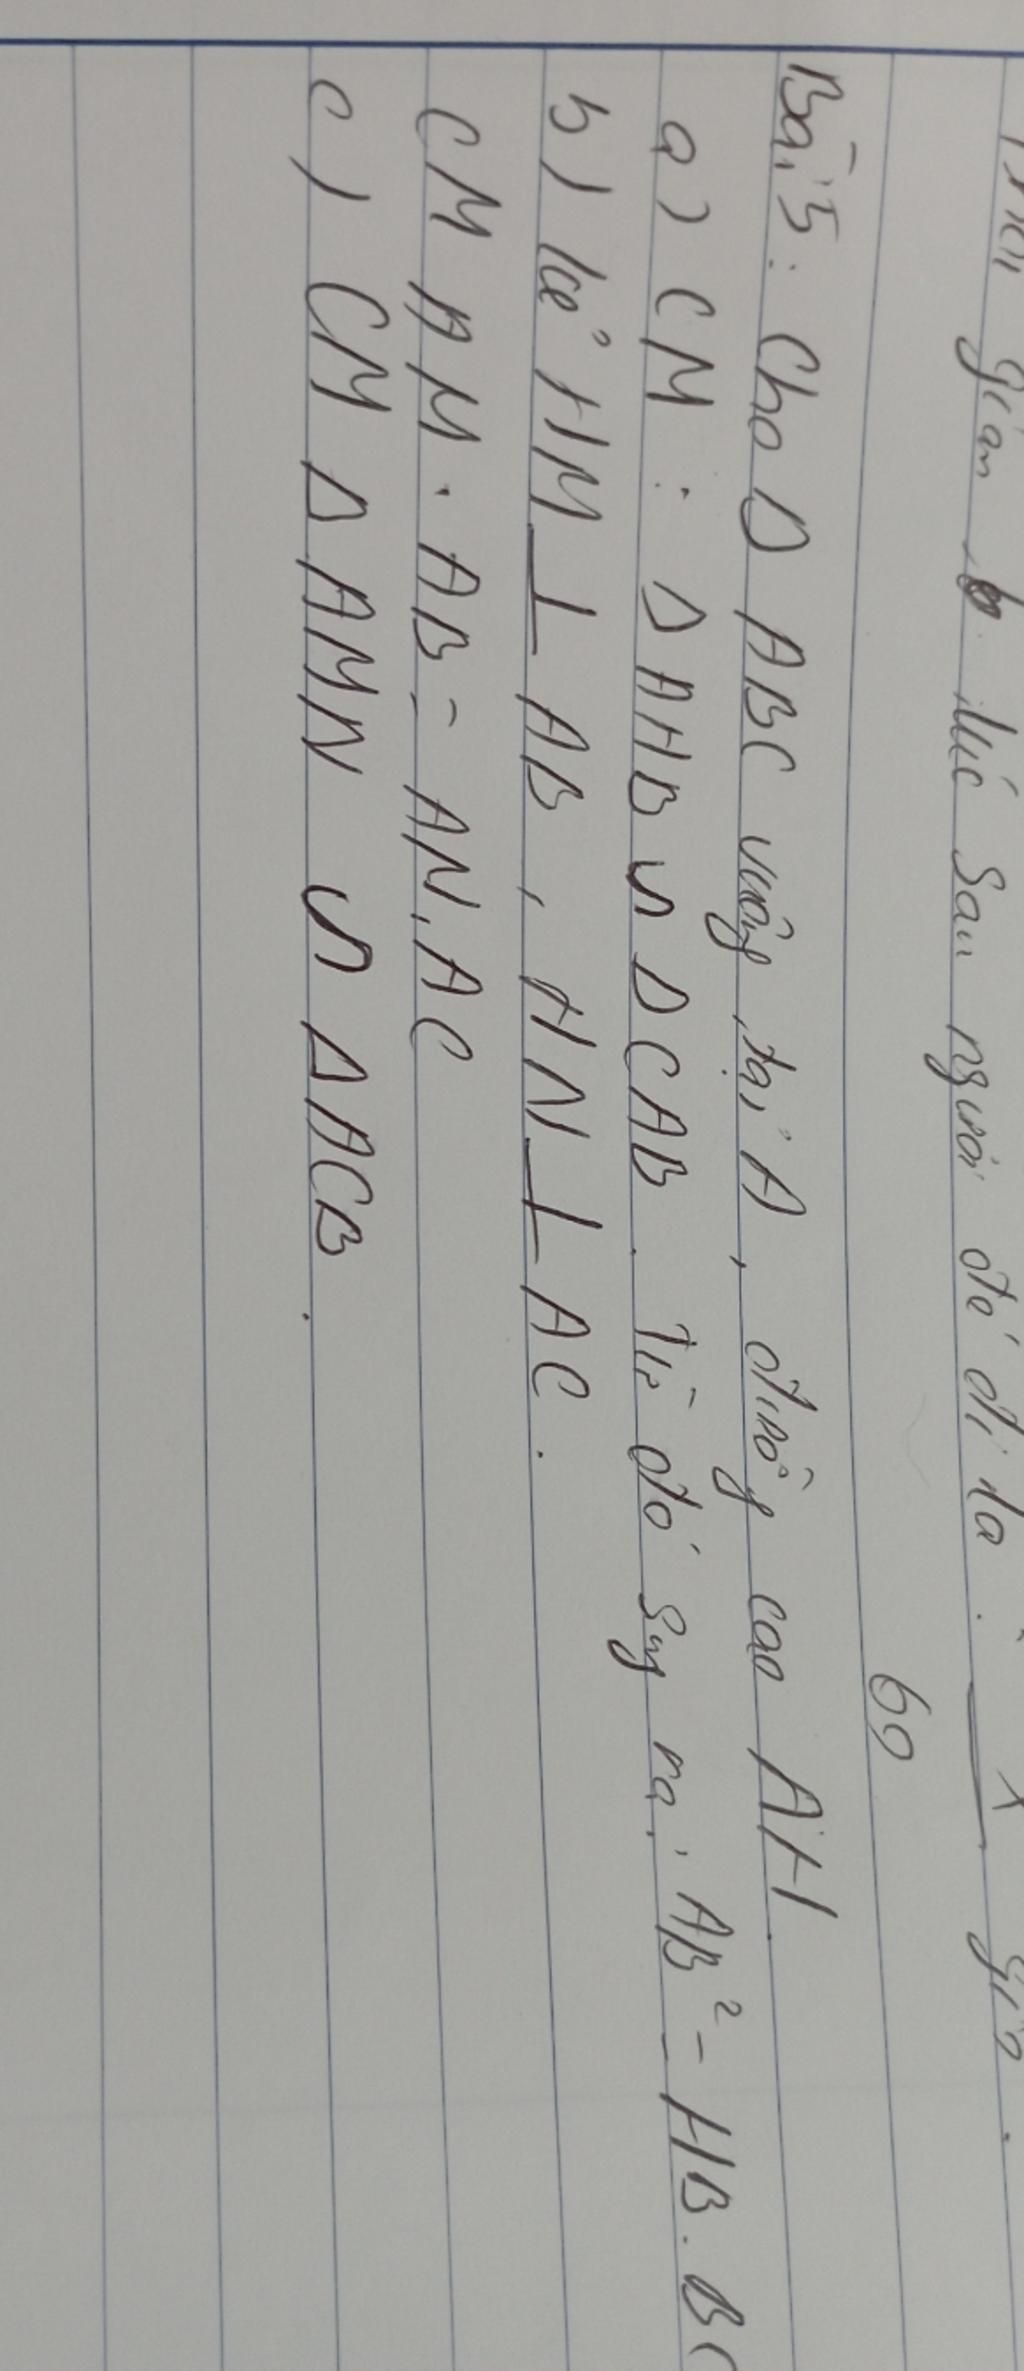 gian lúc sau người đó đi là
60
Bài 5: Cho Δ ABC vuông tại A, đường cao AH
a) CM: Δ AHB ∽ Δ CAB. Từ đó suy ra: AB² = HB. BC
b) kẻ HM ⊥ AB, HN ⊥ AC.
CM AM. AB = AN. AC
c) CM Δ AMN ∽ Δ ACB.